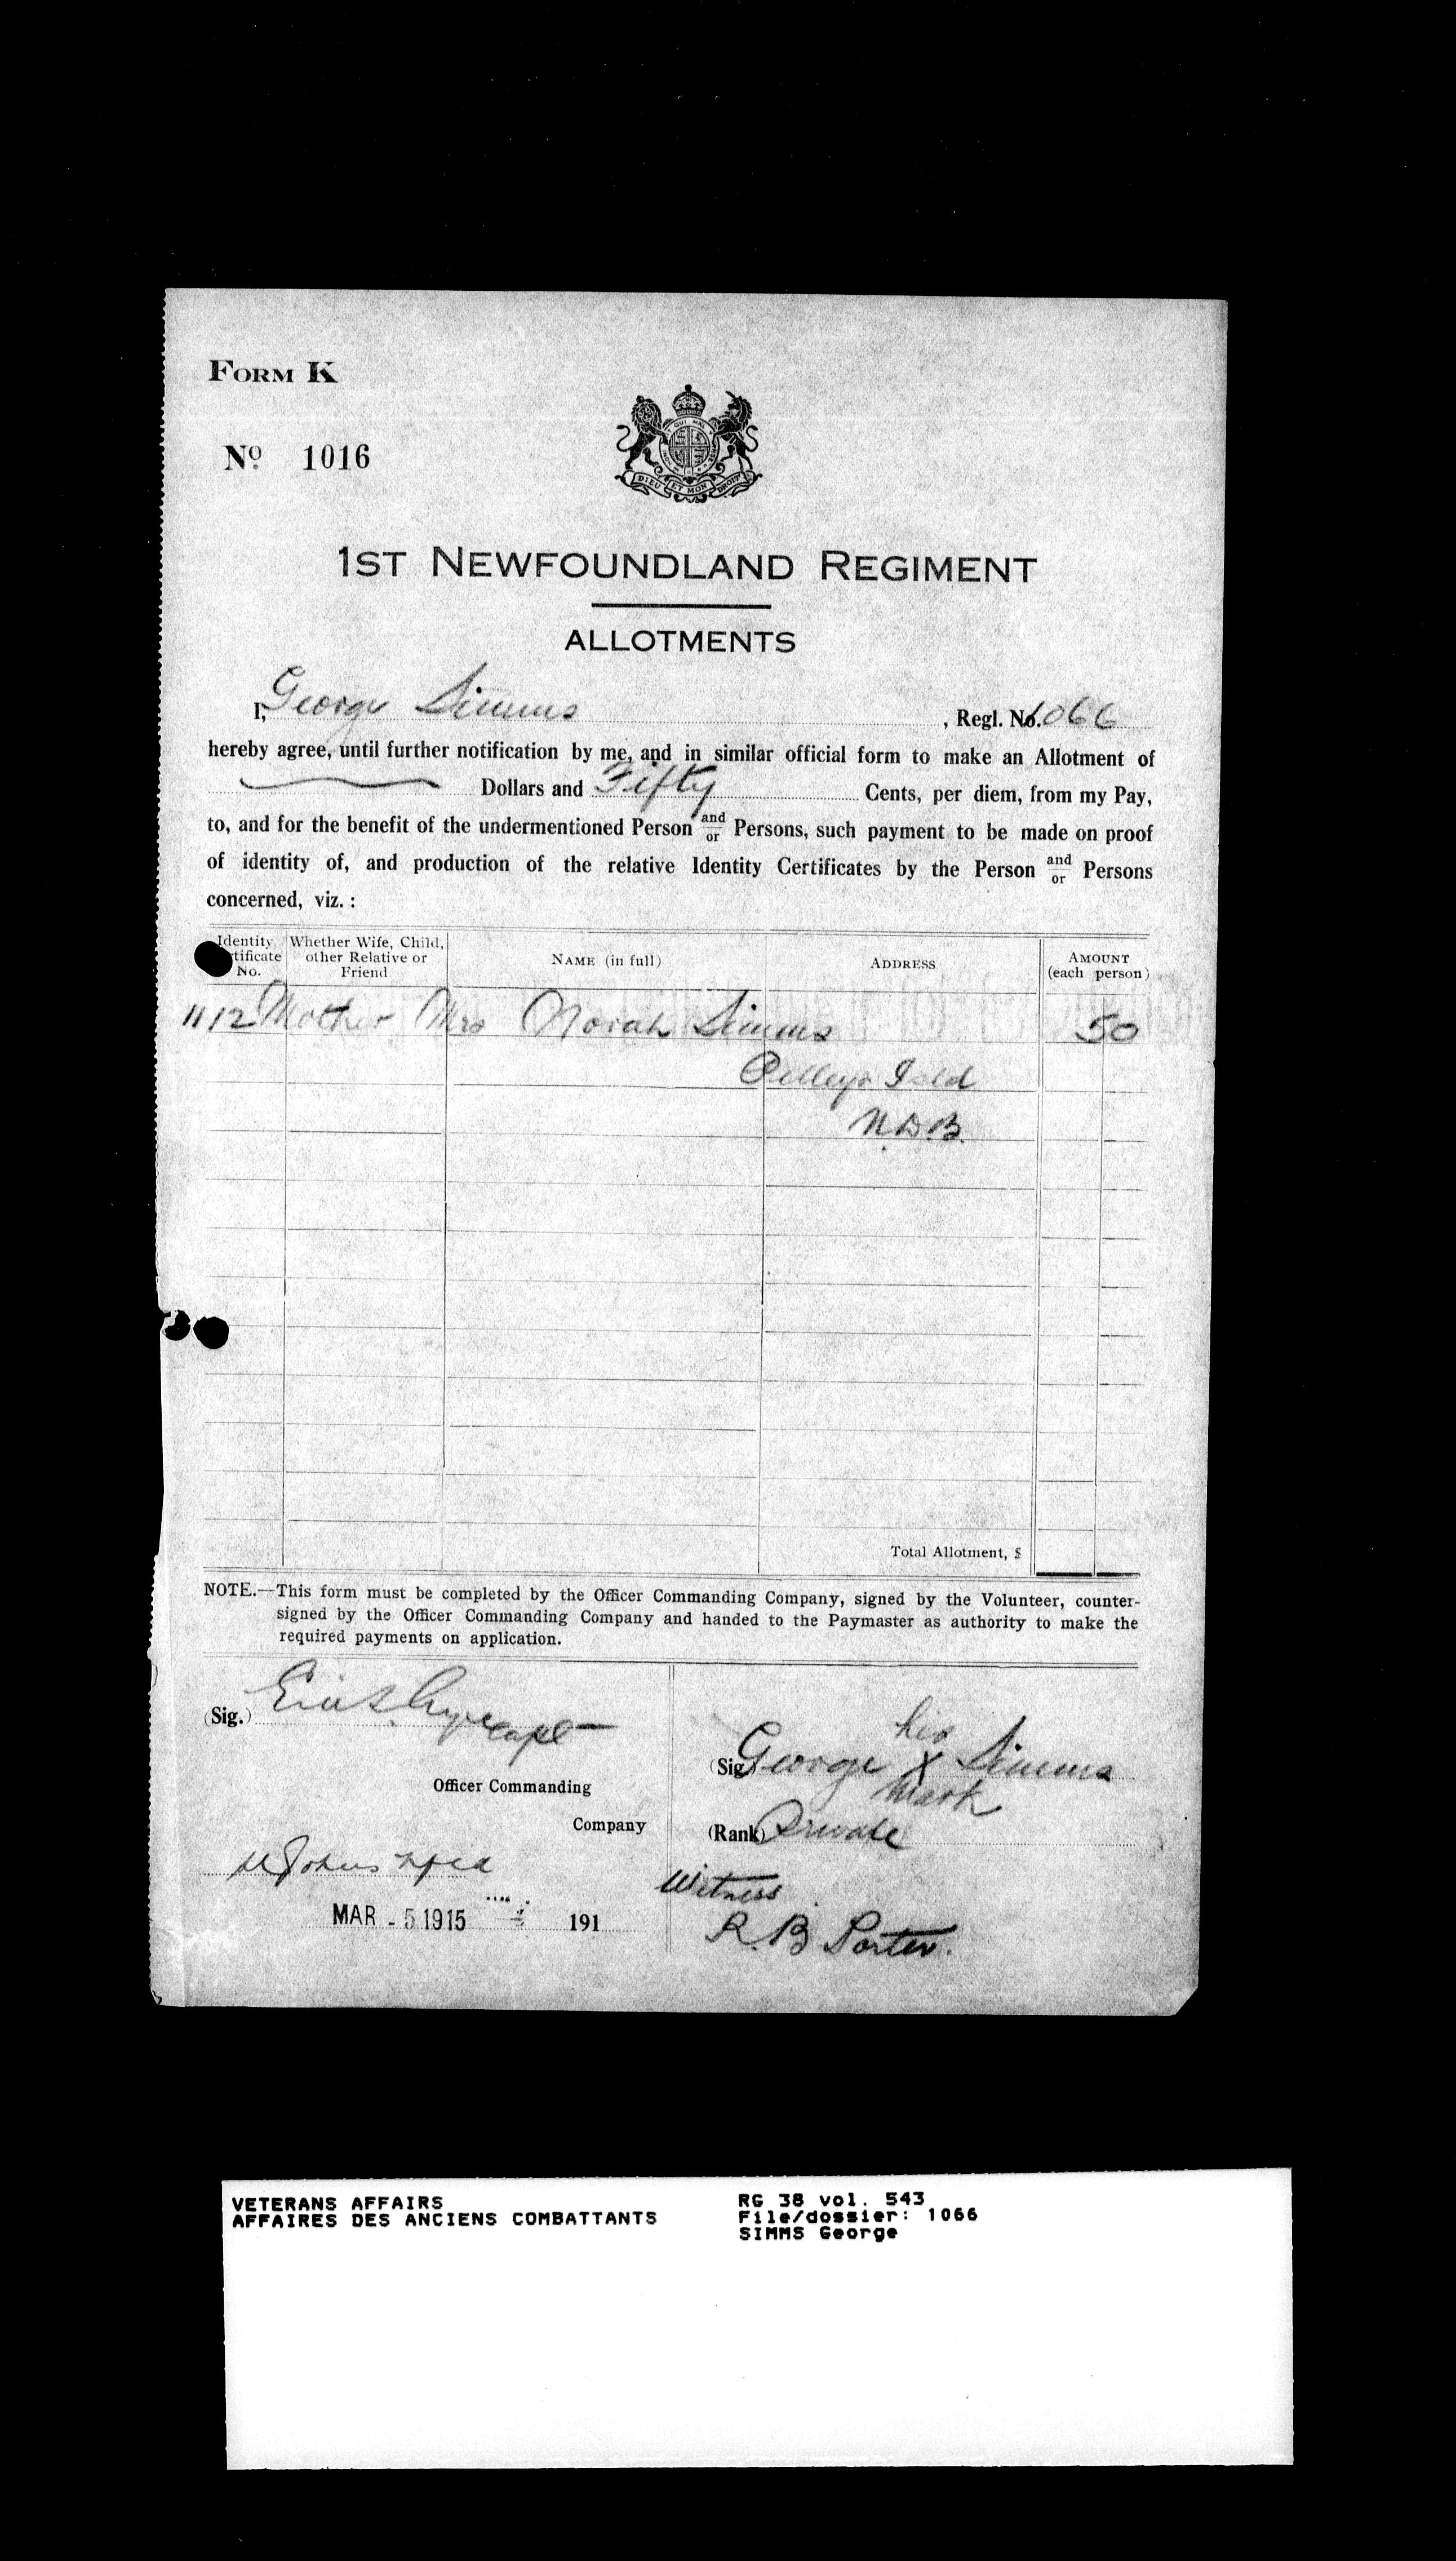 FORM K
No 1016
DIEU ET MON DROIT
1ST NEWFOUNDLAND REGIMENT
ALLOTMENTS
I, George Simms, Regl. No. 1066
hereby agree, until further notification by me, and in similar official form to make an Allotment of
Dollars and Fifty Cents, per diem, from my Pay,
to, and for the benefit of the undermentioned Person and/or Persons, such payment to be made on proof
of identity of, and production of the relative Identity Certificates by the Person and/or Persons
concerned, viz. :
Identity tificate No. Whether Wife, Child, other Relative or Friend NAME (in full) ADDRESS AMOUNT (each person)
1112 Mother Mrs Norah Simms 50
Pilleys Isld
N.D.B.
Total Allotment, $
NOTE.—This form must be completed by the Officer Commanding Company, signed by the Volunteer, counter-
signed by the Officer Commanding Company and handed to the Paymaster as authority to make the
required payments on application.
(Sig.) Capt
Officer Commanding
Company
St Johns Nfld
MAR - 5 1915 191
his
(Sig.) George X Simms
mark
(Rank) Private
Witness
R. B Porter.
VETERANS AFFAIRS
AFFAIRES DES ANCIENS COMBATTANTS
RG 38 vol. 543
File/dossier: 1066
SIMMS George